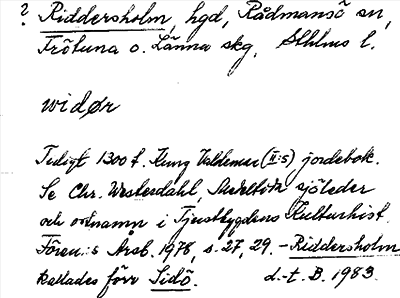 ? Riddersholm, hgd, Rådmansö sn,
Frötuna o. Länna skg, Sthlms l.
widør
Tidigt 1300 t. Kung Valdemar (II:s) jordebok.
Se Chr. Westerdahl, Medeltida sjöleder
och ortnamn i Tjustbygdens Kulturhist.
Fören:s Årsb. 1978, s. 27, 29. - Riddersholm
kallades förr Sidö. d.-t. B. 1983.